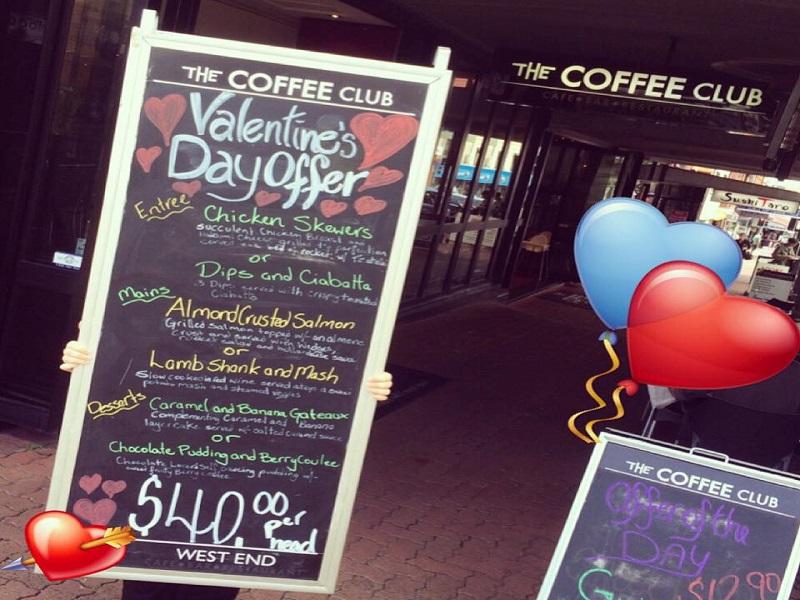 THE COFFEE CLUB
Valentine's
Day Offer
Entree
Chicken Skewers
succulent Chicken Breast and
served bed of rocket w/
or
Dips and Ciabatta
3 Dips served with crispy toasted
Ciabatta
Mains
Almond Crusted Salmon
Grilled Salmon topped w/ an almond
crust and served with wedges,
salad and sauce
or
Lamb Shank and Mash
Slow cooked wine served atop a
potato mash and steamed veggies
Desserts
Caramel and Banana Gateaux
Complementing Caramel and Banana
layer cake served w/ salted Caramel sauce
or
Chocolate Pudding and Berry Coulee
Chocolate pudding w/
fruity Berry Coulee
$40.00 per
head
WEST END
CAFE BAR RESTAURANT
THE COFFEE CLUB
CAFE BAR RESTAURANT
Sushi Taro
THE COFFEE CLUB
Offer of the
DAY
$12.90